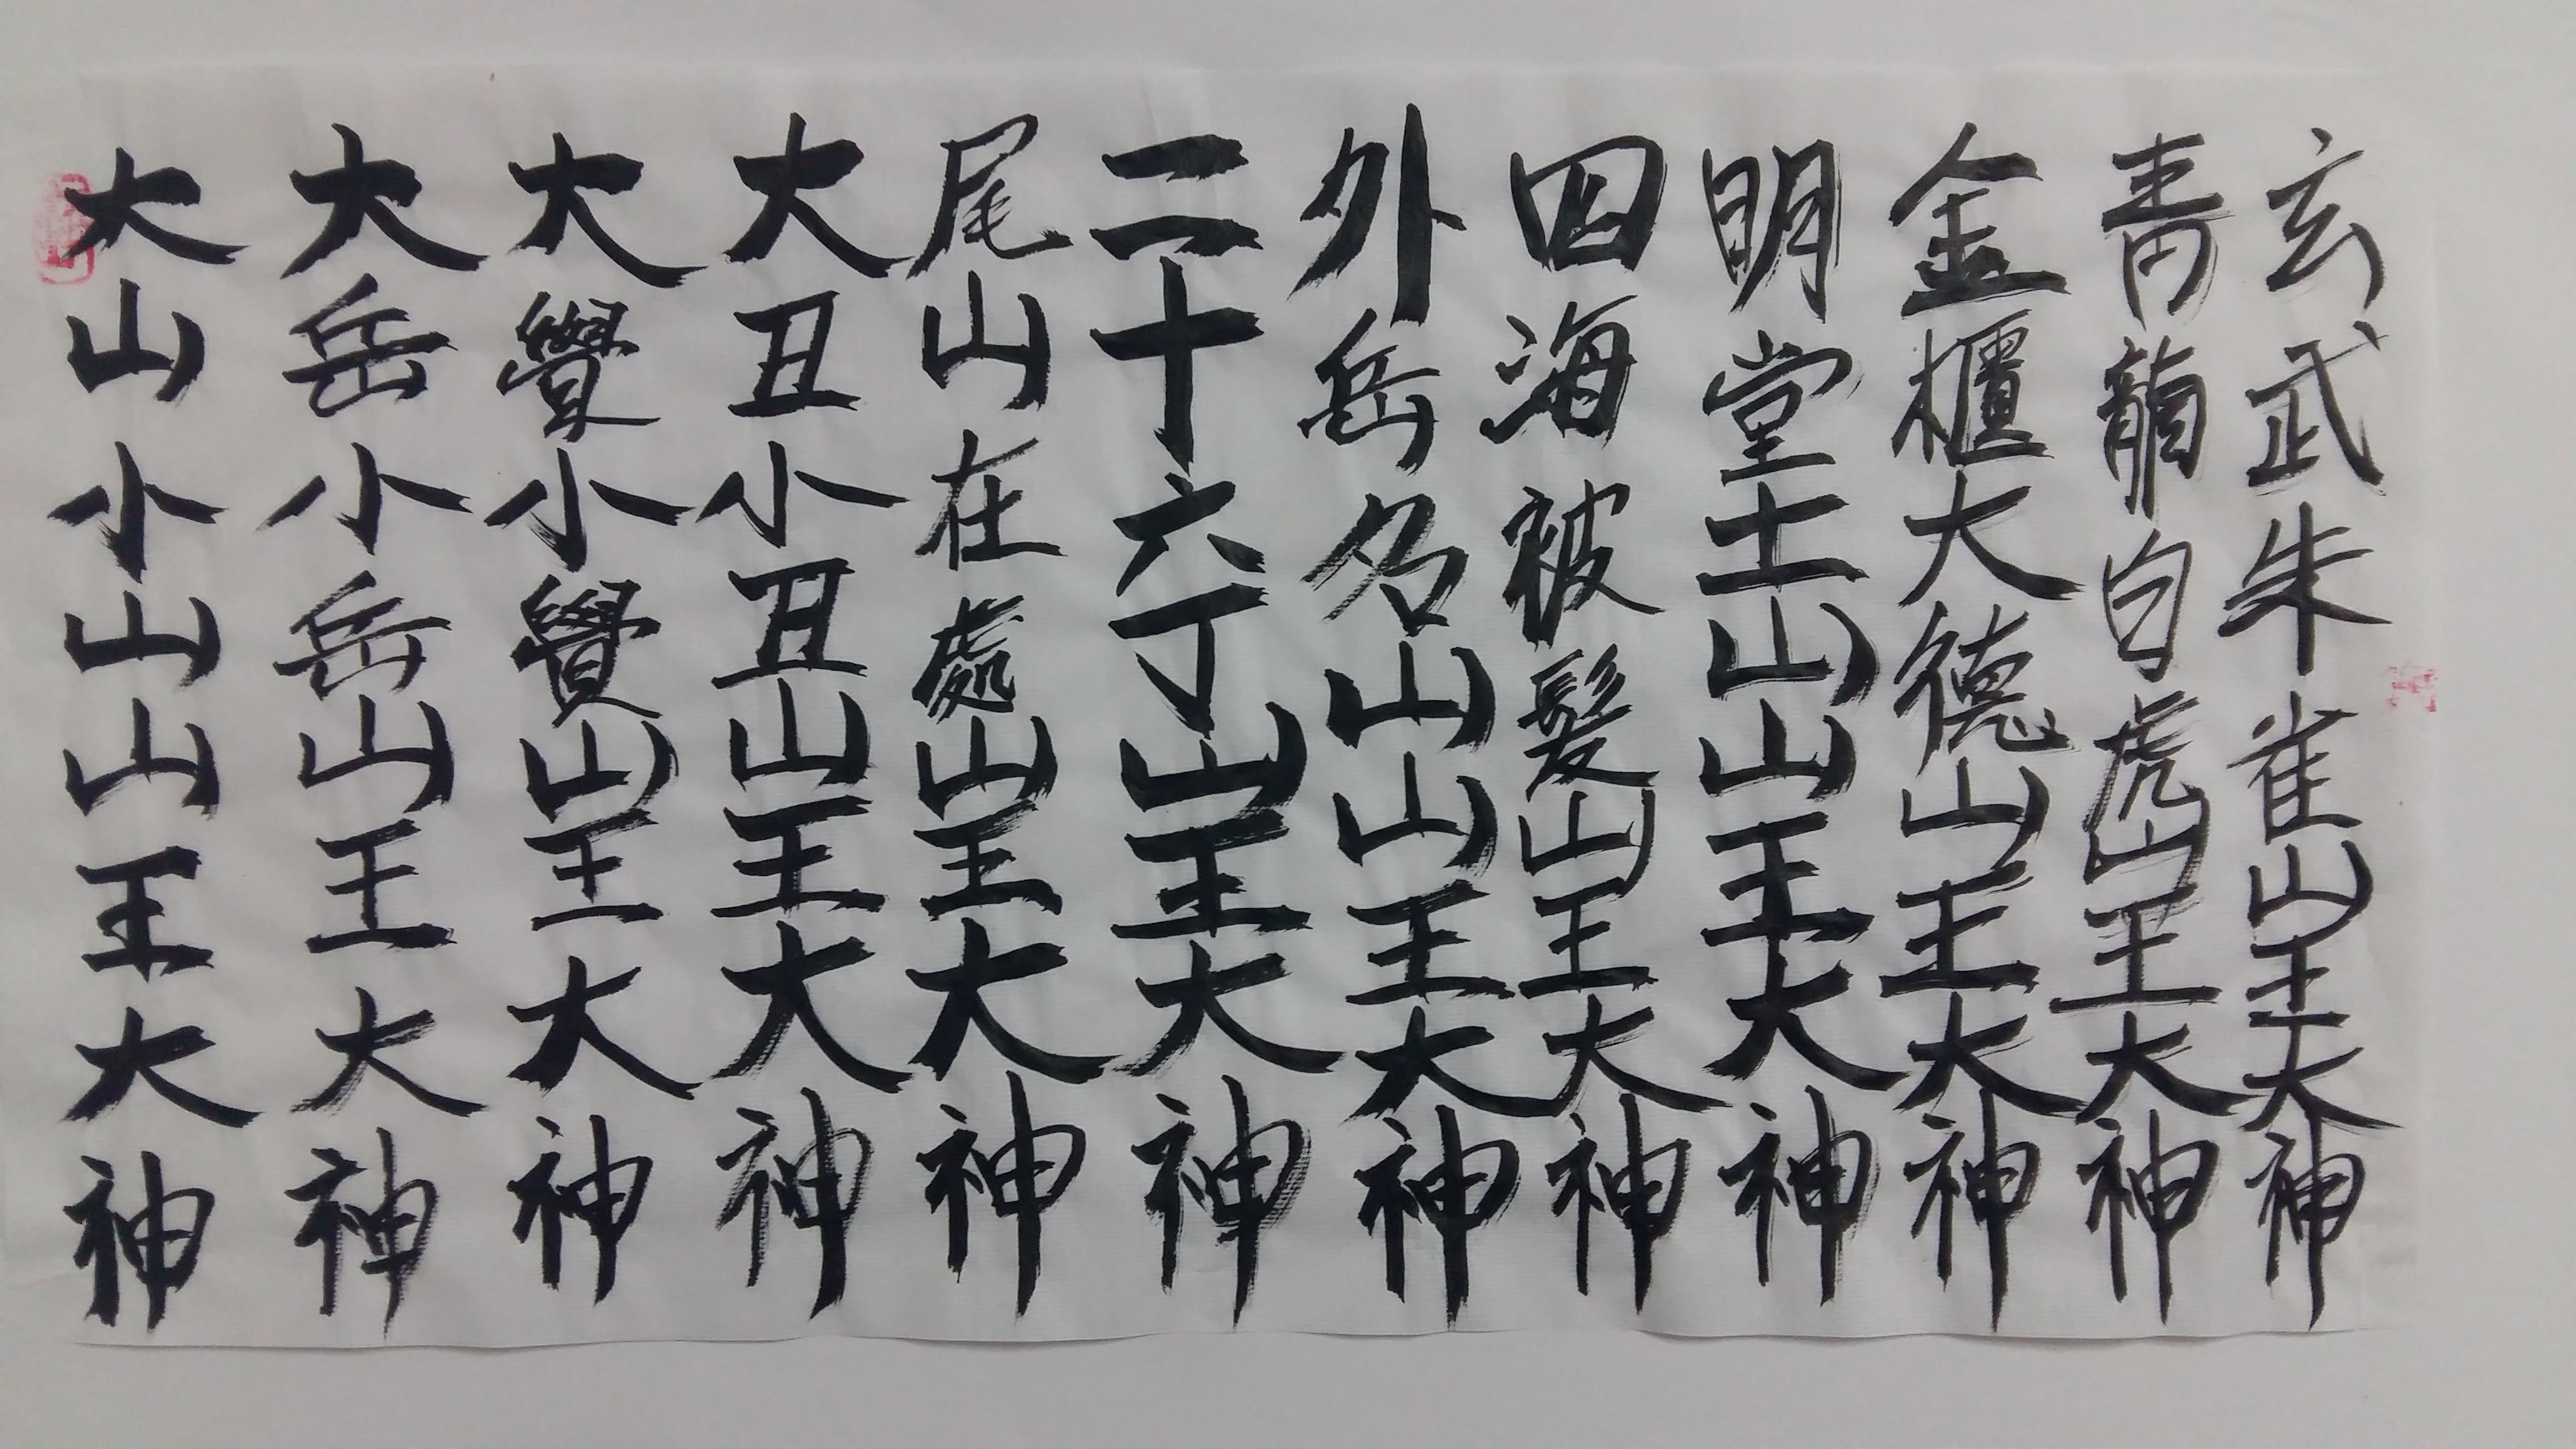 大山小山山王大神
大岳小岳山王大神
大覺小覺山王大神
大丑小丑山王大神
尾山在處山王大神
二十六丁山王大神
外岳名山山王大神
四海被髮山王大神
明堂土山山王大神
金櫃大德山王大神
靑龍白虎山王大神
玄武朱雀山王大神